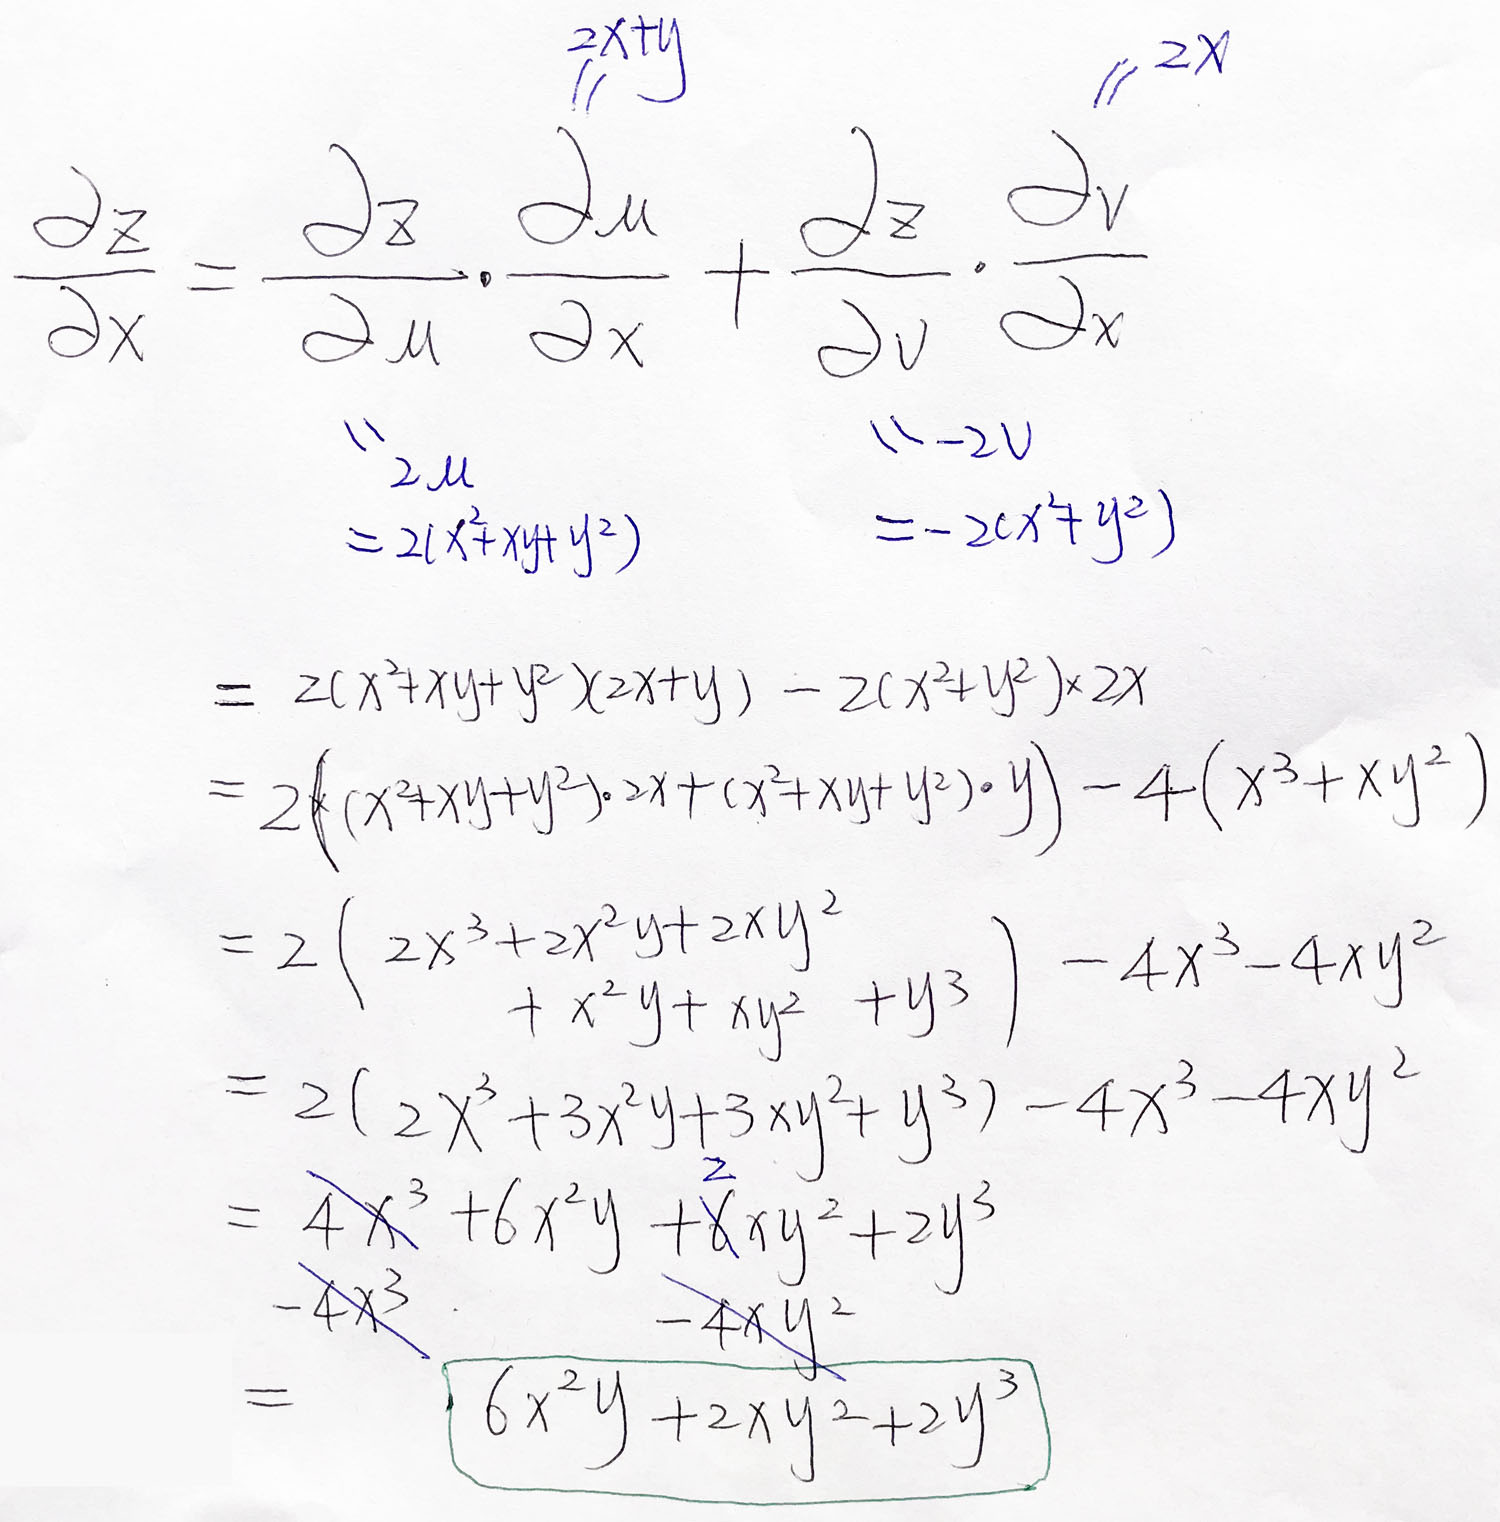 2x+y
〃 2x
∂z/∂x = ∂z/∂u · ∂u/∂x + ∂z/∂v · ∂v/∂x
〃 2u
= 2(x²+xy+y²)
〃 -2v
= -2(x²+y²)
= 2(x²+xy+y²)(2x+y) - 2(x²+y²)×2x
= 2((x²+xy+y²)·2x+(x²+xy+y²)·y) - 4(x³+xy²)
= 2( 2x³+2x²y+2xy²
+ x²y+xy² +y³ ) - 4x³ - 4xy²
= 2(2x³+3x²y+3xy²+y³) - 4x³ - 4xy²
2
= 4x³ +6x²y +6xy²+2y³
-4x³ -4xy²
= 6x²y+2xy²+2y³